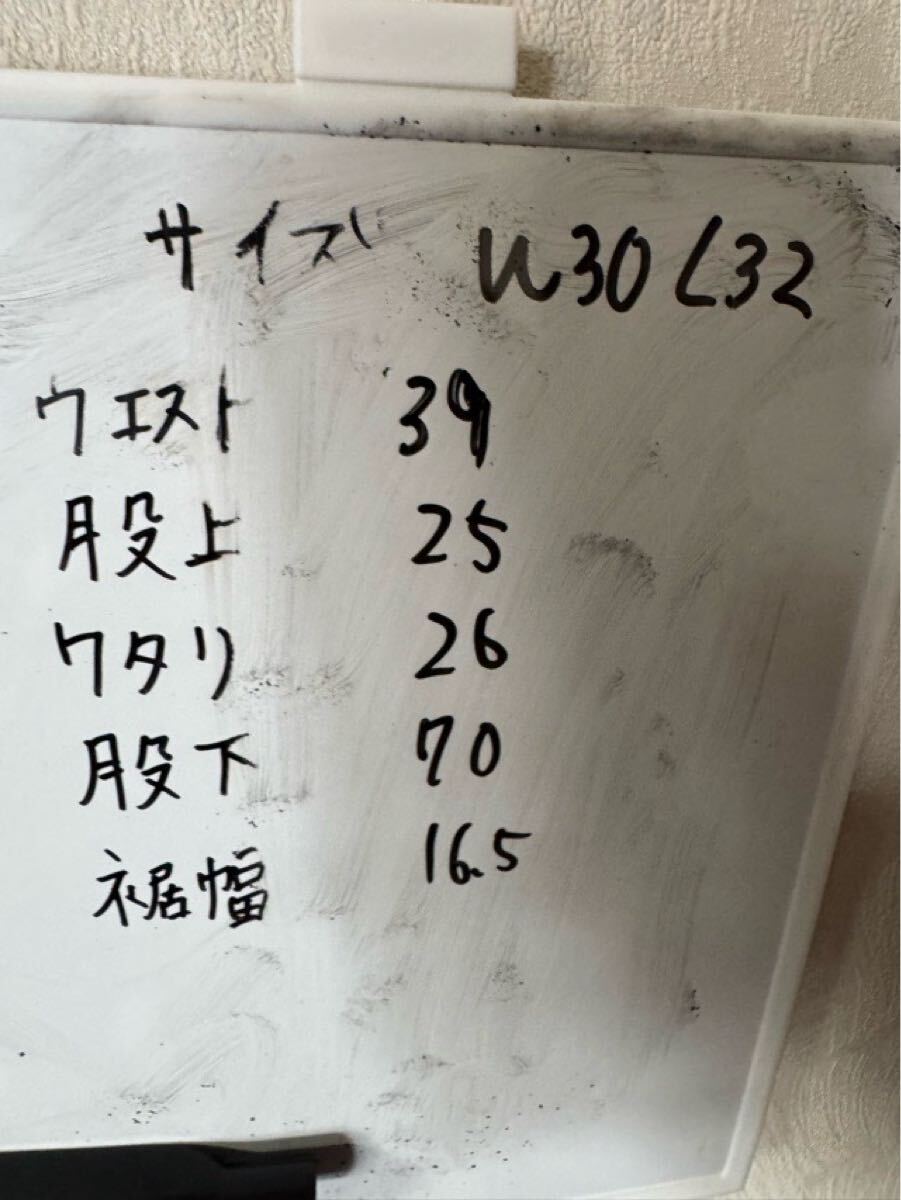 サイズ W30 L32
ウエスト 39
股上 25
ワタリ 26
股下 70
裾幅 16.5